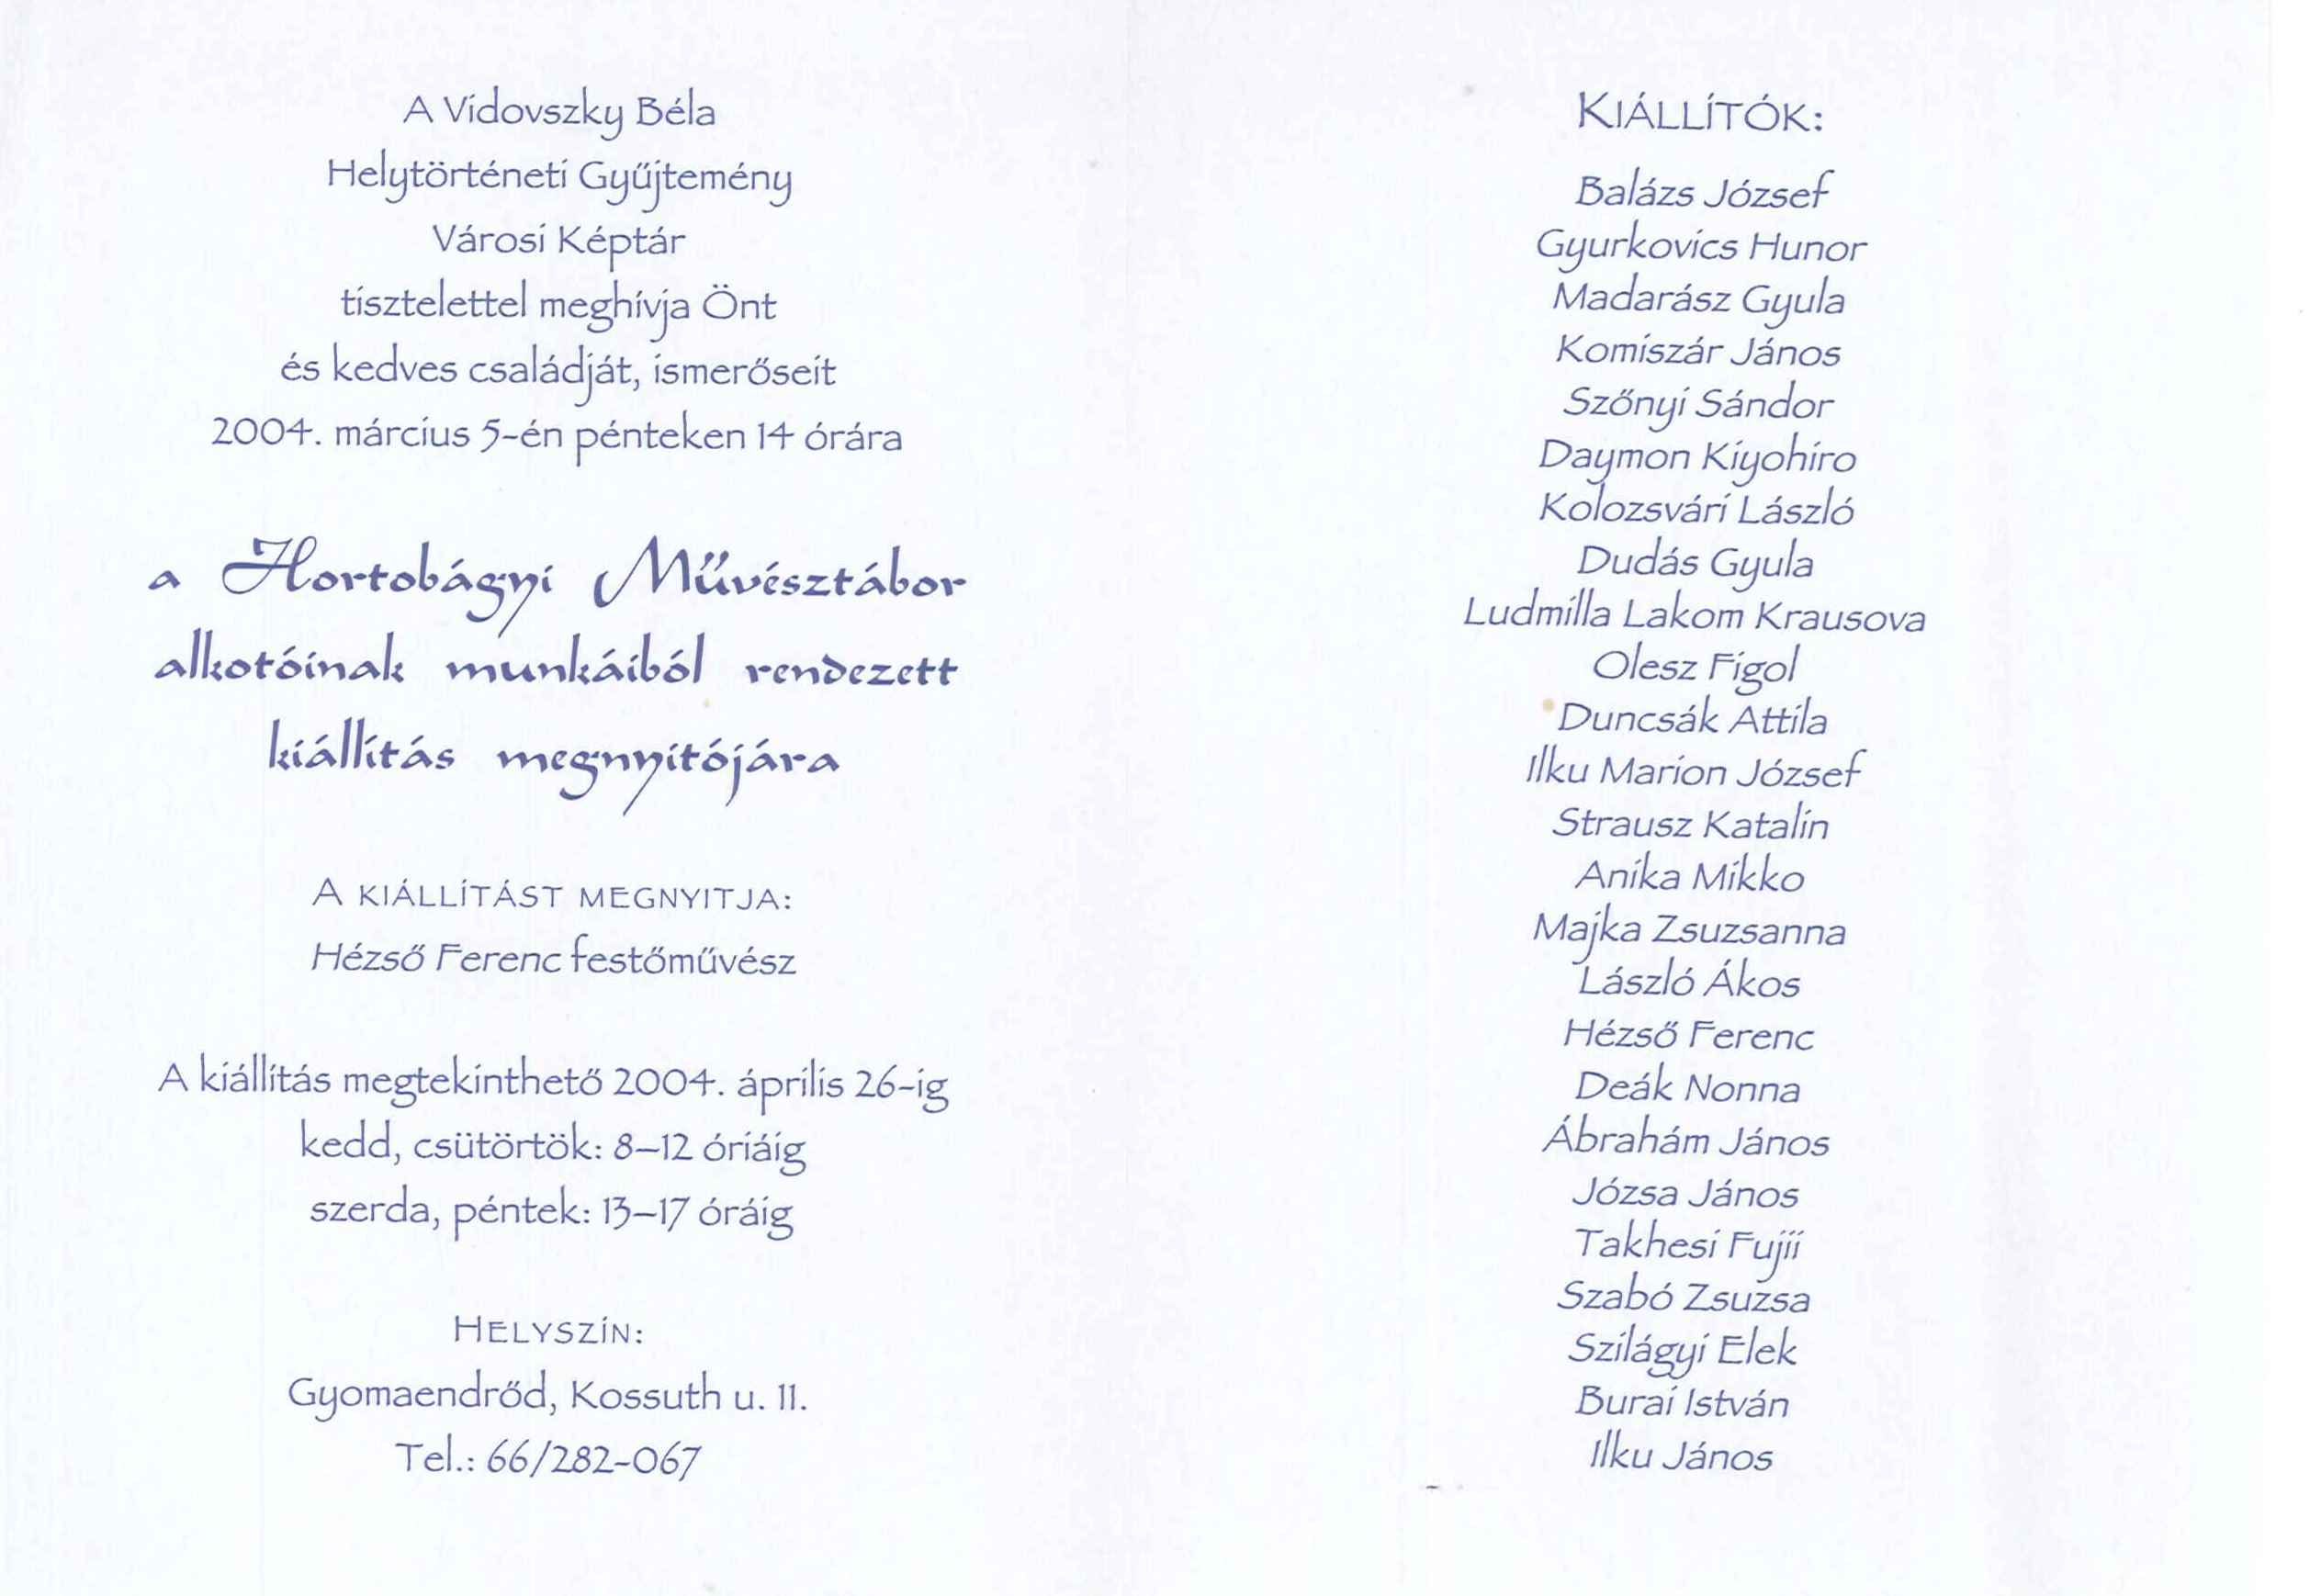 A Vidovszky Béla
Helytörténeti Gyűjtemény
Városi Képtár
tisztelettel meghívja Önt
és kedves családját, ismerőseit
2004. március 5-én pénteken 14 órára
a Hortobágyi Művésztábor
alkotóinak munkáiból rendezett
kiállítás megnyitójára
A KIÁLLÍTÁST MEGNYITJA:
Hézső Ferenc festőművész
A kiállítás megtekinthető 2004. április 26-ig
kedd, csütörtök: 8–12 óriáig
szerda, péntek: 13–17 óráig
HELYSZÍN:
Gyomaendrőd, Kossuth u. 11.
Tel.: 66/282-067
KIÁLLÍTÓK:
Balázs József
Gyurkovics Hunor
Madarász Gyula
Komiszár János
Szőnyi Sándor
Daymon Kiyohiro
Kolozsvári László
Dudás Gyula
Ludmilla Lakom Krausova
Olesz Figol
Duncsák Attila
Ilku Marion József
Strausz Katalin
Anika Mikko
Majka Zsuzsanna
László Ákos
Hézső Ferenc
Deák Nonna
Ábrahám János
Józsa János
Takhesi Fujii
Szabó Zsuzsa
Szilágyi Elek
Burai István
Ilku János